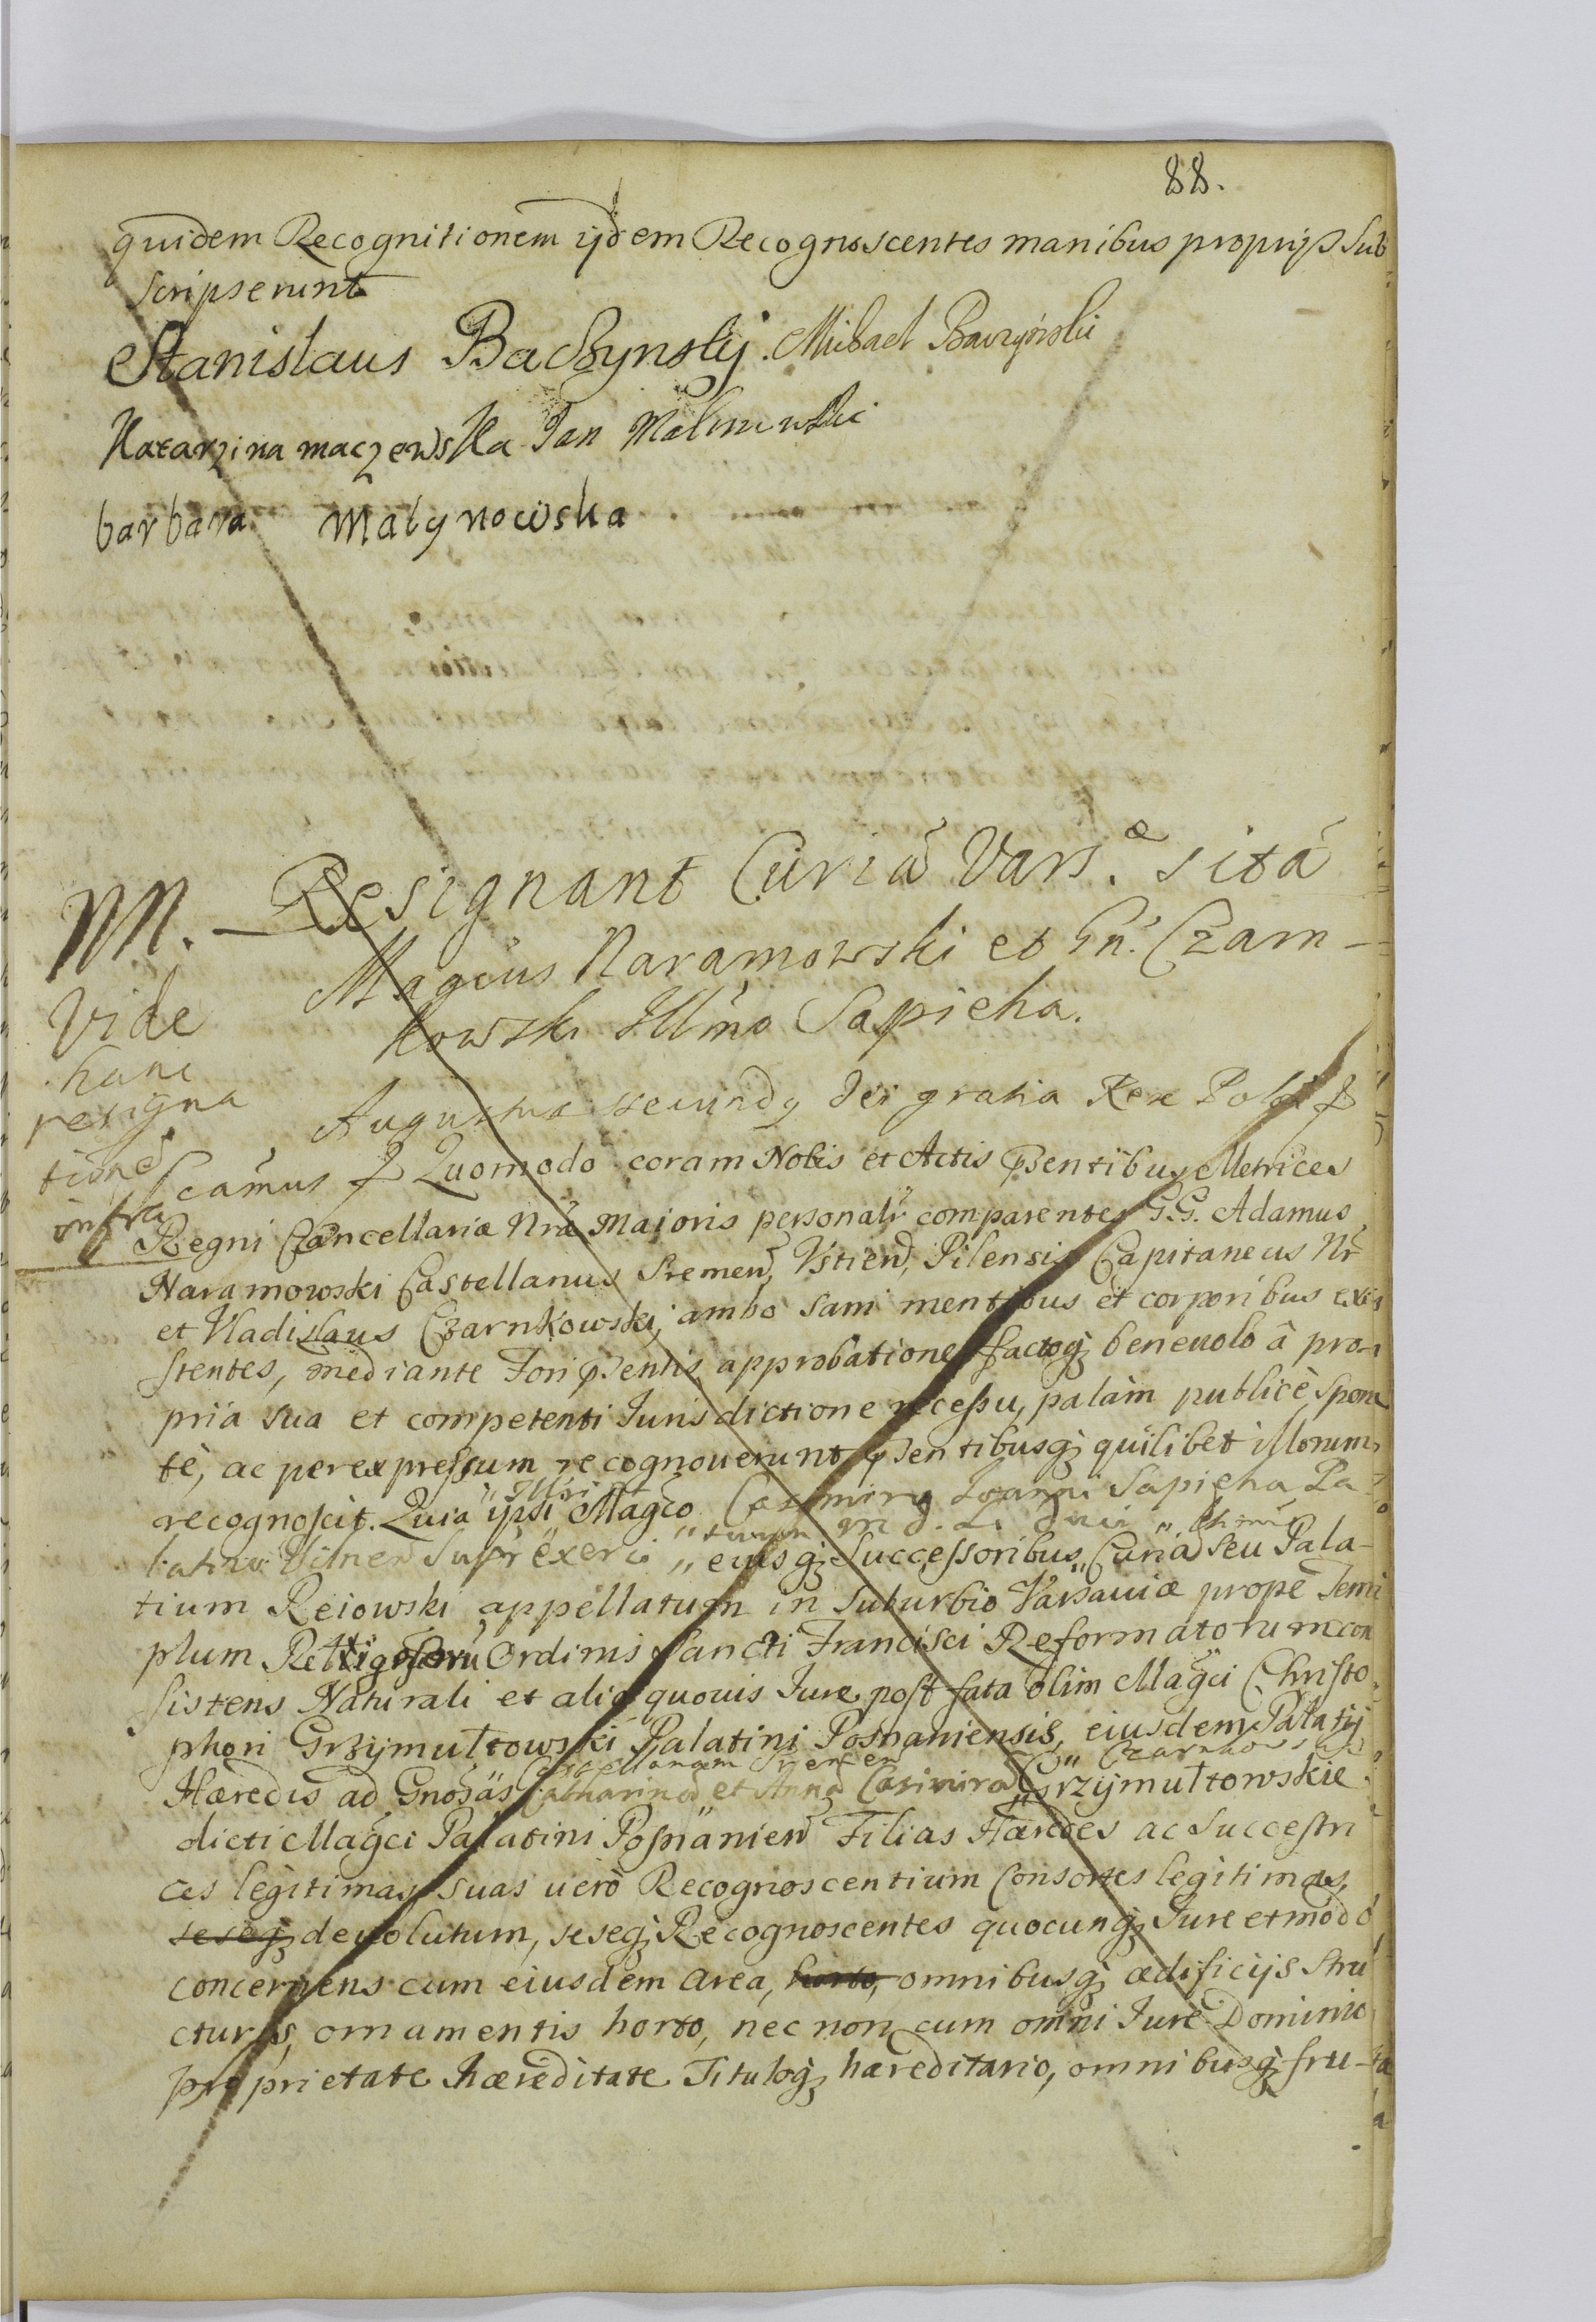 88.
quidem Recognitionem ijdem Recognoscentes manibus proprijs sub
scripserunt
Stanislaus Baczynsky. Michael Baczyński
Katarzina maczewska Jan Malinowski
barbara Malynowska
M. Resignant Curiã Vars.æ sitã
Magcus Naramowski et Gn. Czarn-
kowski Illmo Sapieha.
Vide
hanc
resigna
tionẽ
infra
Augustus secundus Dei gratia Rex Pol
Scamus Quomodo coram Nobis et Actis pñsentibus Metrices
Regni Cancellariæ Nræ Majoris personalr comparentes G.G. Adamus
Naramowski Castellanus Sremeñ, Ustieñ, Pilensis Capitaneus Nr
et Vladislaus Czarnkowski, ambo sani mentibus et corporibus exi
stentes, mediante Fori pñsentis approbatione factoq; beneuolo â pro-
pria sua et competenti Jurisdictione recessu, palàm publicè spon
tè, ac per expressum recognouerunt pñsentibusq; quilibet illorum
recognoscit. Quia ipsi Illri Magco Casimiro Joanni Sapieha Pa
latino Vilneñ Supr exerci "tuum M. D. L. Duci
" eiusq; Successoribus, Curiã seu Pala-
tium Reiowski appellatum in Suburbio Varsauiæ propè Tem
plum Religiosorũ Ordinis Sancti Francisci Reformatorum con
sistens Naturali et alio quouis Jure post fata olim Magci Christo
phori Grzÿmułtowski Palatini Posnaniensis, eiusdem Palatij
Castellanam Sremeñ " Czarnkows
Hæredis ad Gnosas Catharinã et Annã Casimirã Grzÿmułtowskie
dicti Magci Palatini Posnanieñ Filias Hæredes ac Successri
ces legitimas suas uerò Recognoscentium Consortes legitimas,
seseq; deuolutum, seseq; Recognoscentes quocunq; Jure et modo
concernens cum eiusdem area, horto, omnibusq; ædificijs stru
cturis, ornamentis horto, nec non cum omni Jure Dominio
proprietate hæreditate Tituloq; hæreditario, omnibusq; fru-